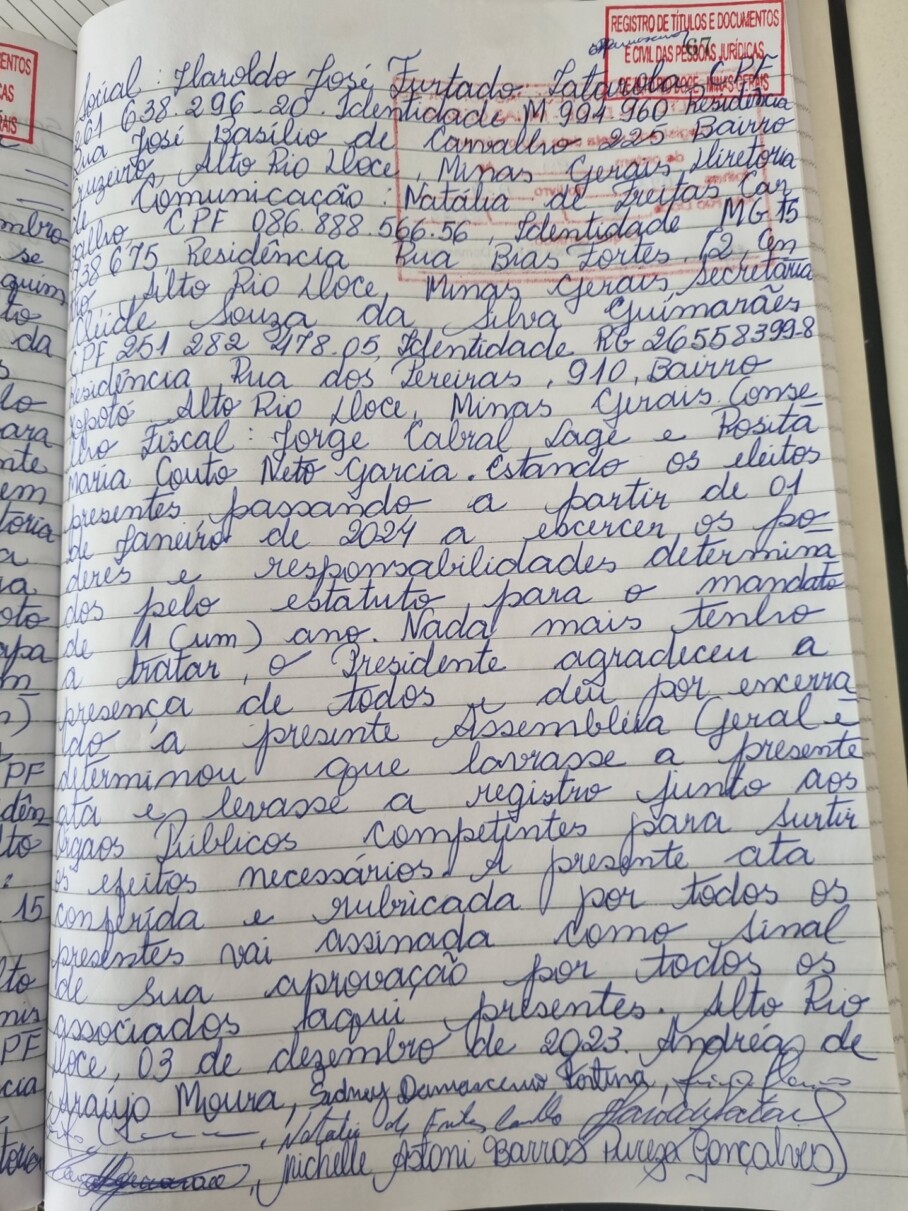 REGISTRO DE TÍTULOS E DOCUMENTOS
E CIVIL DAS PESSOAS JURÍDICAS
DE ALTO RIO DOCE - MINAS GERAIS
67
ENTOS
CAS
RAIS
Social: Haroldo José Furtado Lataroba, CPF
261 638.296-20. Identidade M 994 960 Residência
Rua José Basílio de Carvalho 225 Bairro
Cruzeiro, Alto Rio Doce, Minas Gerais Diretoria
de Comunicação: Natália de Freitas Car
valho CPF 086.888.566.56, Identidade MG 15
938675, Residência Rua Bias Fortes, 62, Cen
tro, Alto Rio Doce, Minas Gerais Secretária
Cleide Souza da Silva Guimarães
CPF 251 282 478.05, Identidade RG 26558399-8
Residência, Rua dos Pereiras, 910, Bairro
Xopotó Alto Rio Doce, Minas Gerais. Conse
lho Fiscal: Jorge Cabral Lage e Rosita
Maria Couto Neto Garcia. Estando os eleitos
presentes passando a partir de 01
de Janeiro de 2024 a excercer os po
deres e responsabilidades determina
dos pelo estatuto, para o mandato
de 1 (um) ano. Nada mais tenho
a tratar, o Presidente agradeceu a
presença de todos e deu por encerra
do a presente Assembleia Geral e
determinou que lavrasse a presente
ata e, levasse a registro junto aos
órgãos Públicos competentes para surtir
os efeitos necessários. A presente ata
conferida e rubricada por todos os
presentes vai assinada como sinal
de sua aprovação por todos os
associados aqui presentes. Alto Rio
Doce, 03 de dezembro de 2023. Andréa de
Araújo Moura, Sidney Damasceno Fortuna,
Natália de Freitas Carvalho
Michelle Astoni Barros Gonçalves